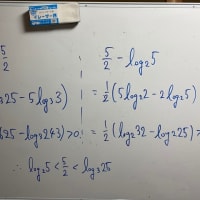 5/2
5/2 - log₂5
og25 - 5log₃3)
= 1/2 (5log₂2 - 2log₂5)
25 - log₃243) > 0
= 1/2 (log₂32 - log₂25) >
∴ log₂5 < 5/2 < log₃25